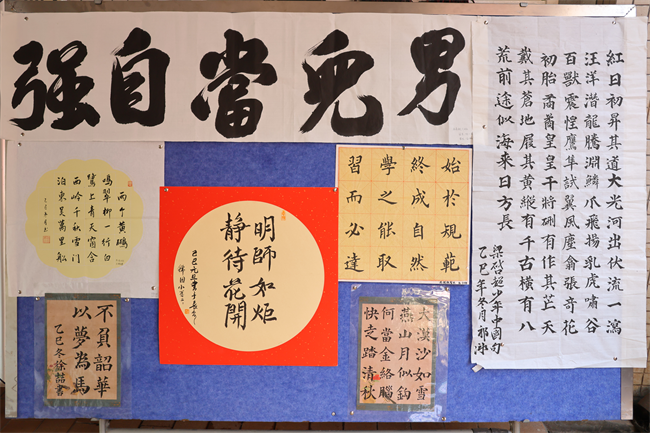 男兒當自强
紅日初昇其道大光河出伏流一瀉
汪洋潛龍騰淵鱗爪飛揚乳虎嘯谷
百獸震惶鷹隼試翼風塵翕張奇花
初胎矞矞皇皇干將硎有作其芒天
戴其蒼地履其黃縱有千古橫有八
荒前途似海來日方長
梁啓超少年中國說
乙巳年冬月祁
始於規範
終成自然
學之能取
習而必達
明師如炬
静待花開
兩个黃鸝
鳴翠柳一行白
鷺上青天窗含
西岭千秋雪門
泊東吳萬里船
大漠沙如雪
燕山月似鉤
何當金絡腦
快走踏清秋
不負韶華
以夢為馬
乙巳冬徐喆書